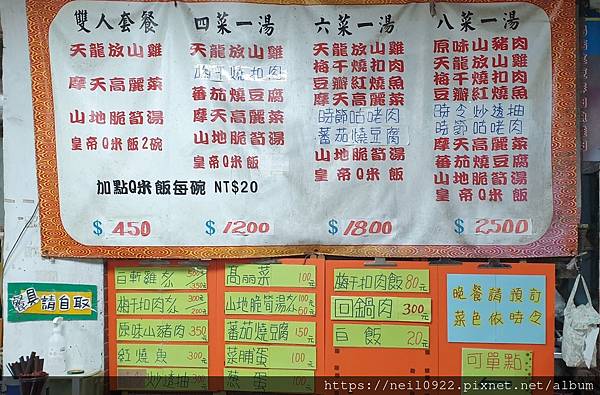 雙人套餐
天龍放山雞
摩天高麗菜
山地脆筍湯
皇帝Q米飯2碗
加點Q米飯每碗 NT$20
$450
四菜一湯
天龍放山雞
梅干燒扣肉
蕃茄燒豆腐
摩天高麗菜
山地脆筍湯
皇帝Q米飯
$1200
六菜一湯
天龍放山雞
梅干燒扣肉
豆瓣紅燒魚
摩天高麗菜
時節咕咾肉
蕃茄燒豆腐
山地脆筍湯
皇帝Q米飯
$1800
八菜一湯
原味山豬肉
天龍放山雞
梅干燒扣肉
豆瓣紅燒魚
時令炒透抽
時節咕咾肉
蕃茄燒豆腐
摩天高麗菜
山地脆筍湯
皇帝Q米飯
$2,500
餐具請自取
原味山豬肉 350
紅燒魚 300
高麗菜 100元
山地脆筍湯
蕃茄燒豆腐 150元
菜脯蛋 100元
蔥蛋 100元
梅干扣肉飯 80元
回鍋肉 300元
白飯 20元
晚餐請預訂
菜色依時令
可單點
https://neil0922.pixnet.net/album